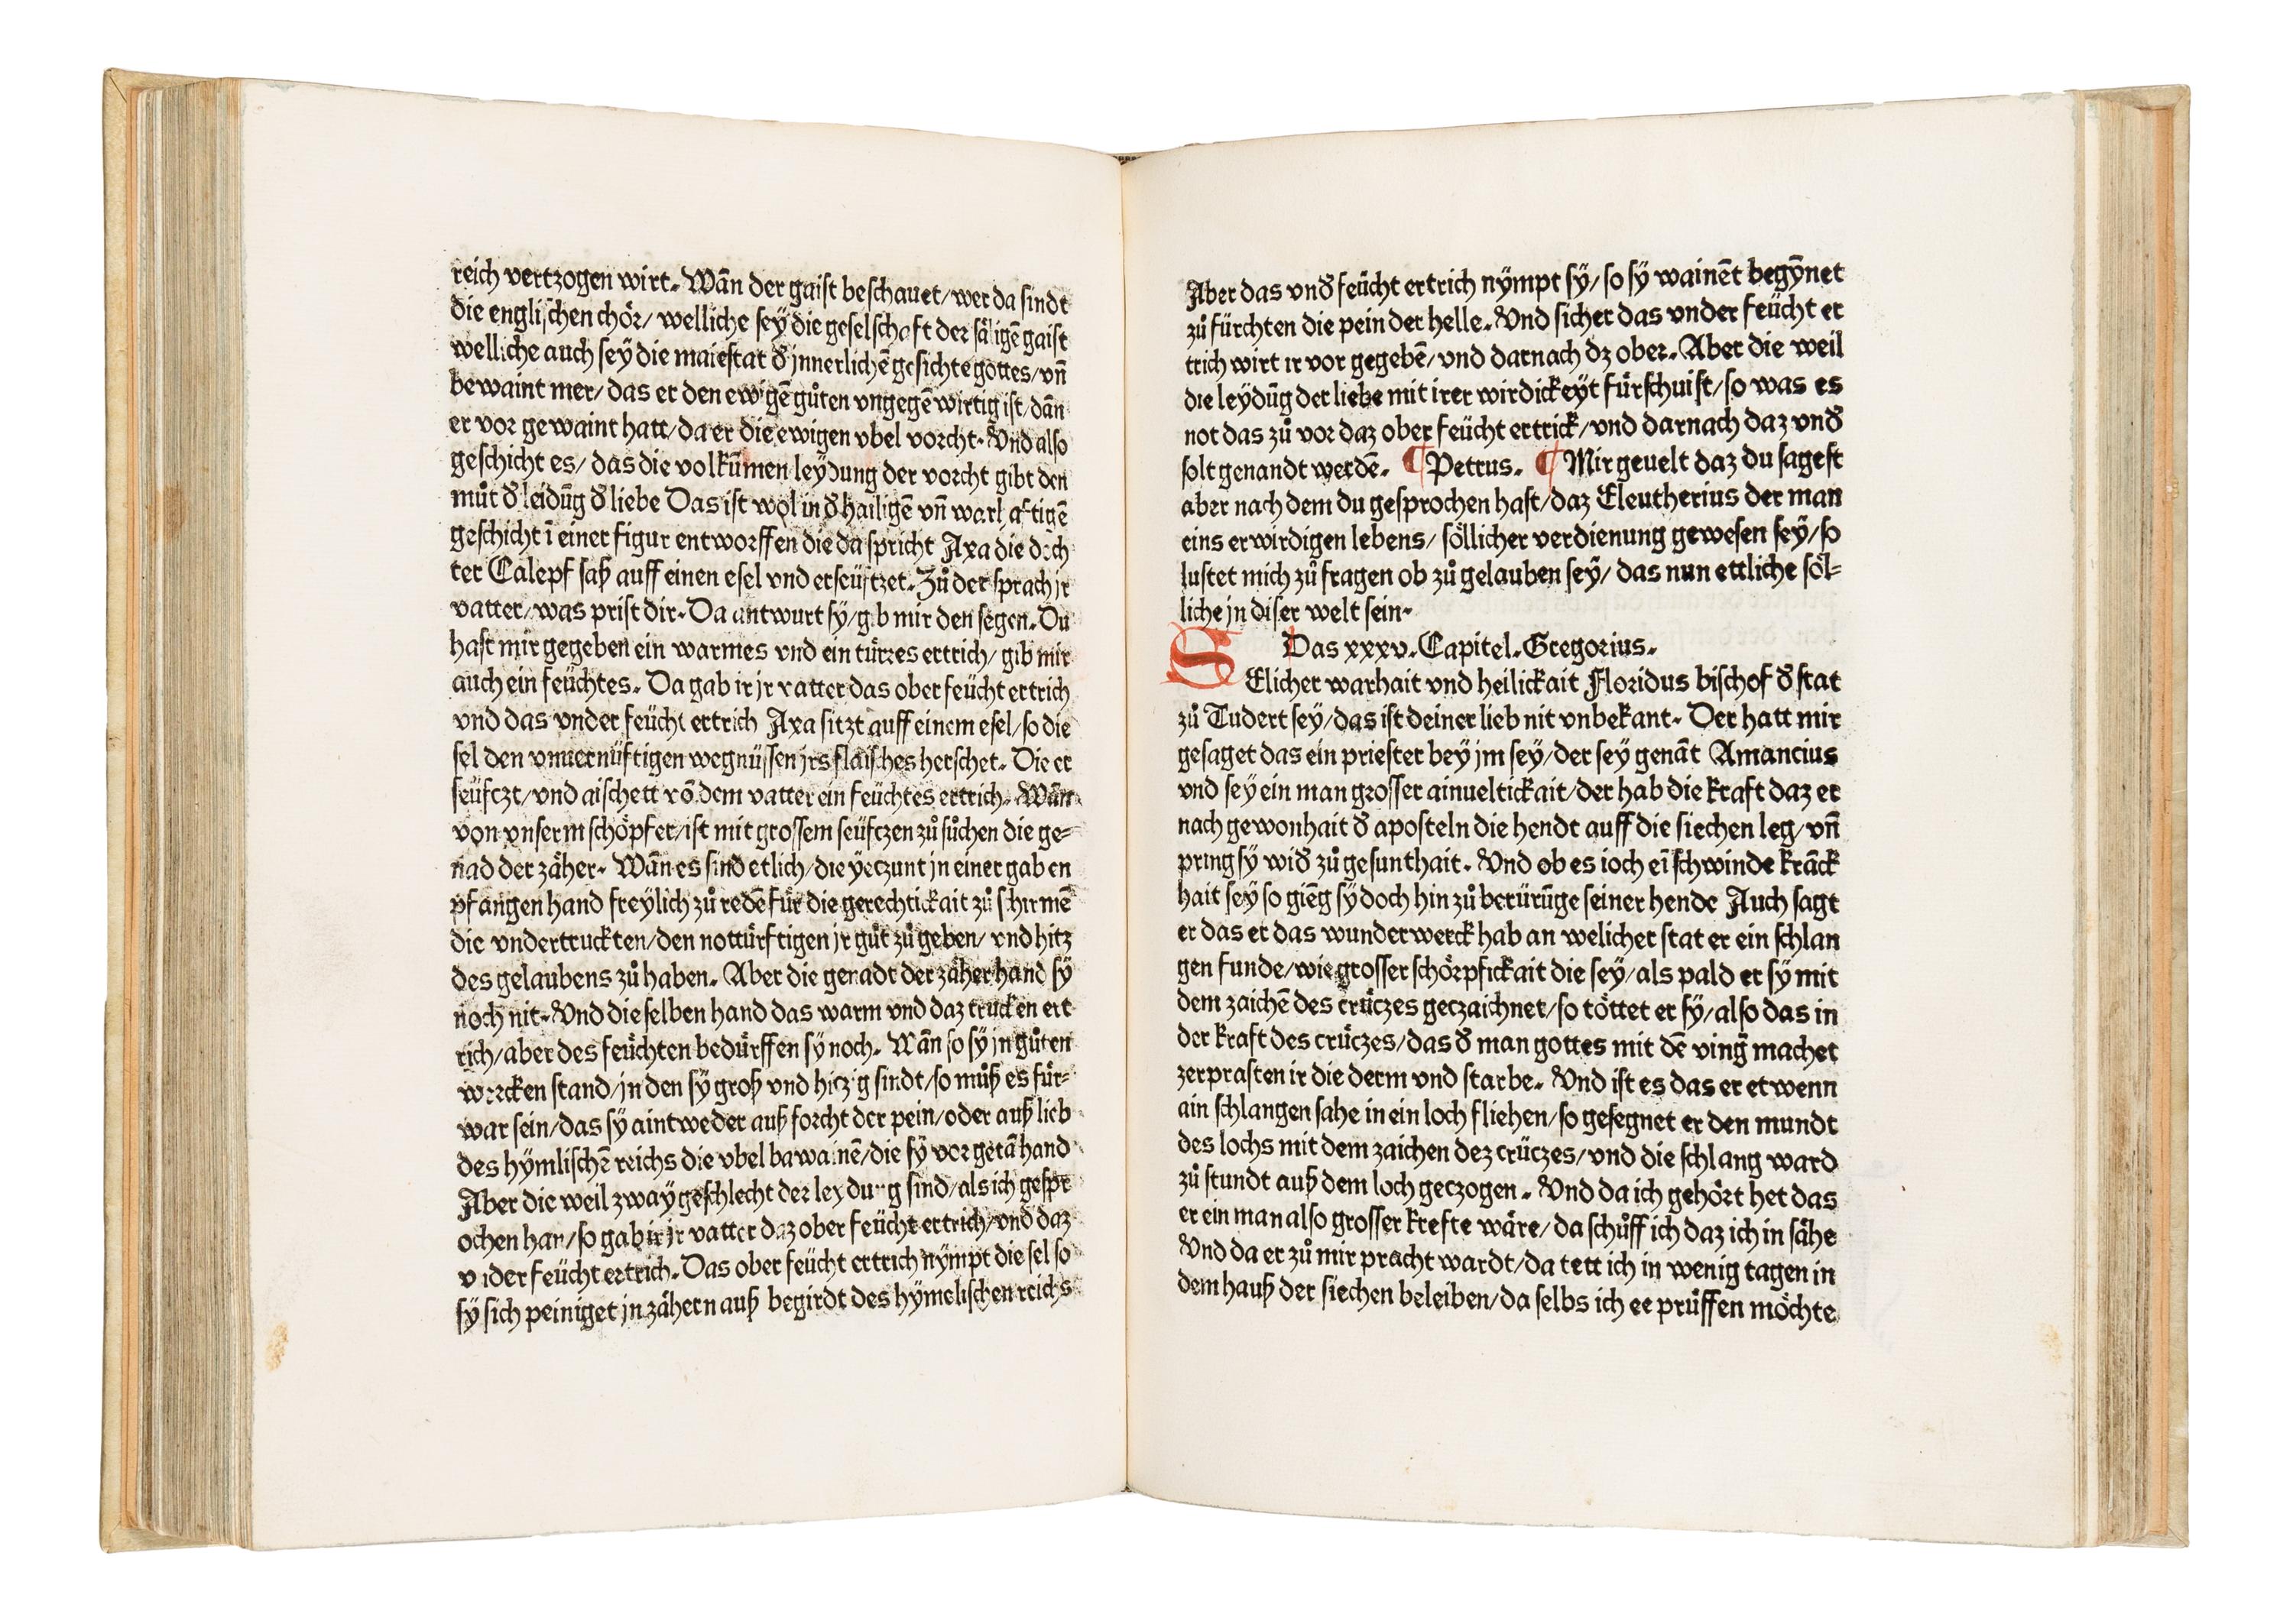 reich vertzogen wirt. Wān der gaist beschauet/wer da sindt
die englischen chör/ welliche sey die geselschaft der säligē gaist
welliche auch sey die maiestat đ jnnerlichē gesichte gottes/vn̄
bewaint mer/ das er den ewigē gůten vngegēwirtig ist/dān
er vor gewaint hatt/da er die ewigen vbel vorcht. Vnd also
geschicht es/ das die volkūmen leydung der vorcht gibt den
můt đ leidūg đ liebe Das ist wol in đ hailigē vn̄ warhaftigē
geschicht ī einer figur entworffen die da spricht Axa die doch
ter Calepf saß auff einen esel vnd erseüftzet. Zů der sprach jr
vatter/was prist dir. Da antwurt sy/gib mir den segen. Du
hast mir gegeben ein warmes vnd ein türres ertrich/ gib mir
auch ein feüchtes. Da gab ir jr vatter das ober feücht ertrich
vnd das vnder feücht ertrich Axa sitzt auff einem esel/so die
sel den vnuernüftigen wegnüssen jrs flaisches herschet. Die er
seüfczt/vnd aischett vō dem vatter ein feüchtes ertrich. Wān
von vnserm schöpfer/ist mit grossem seüfczen zů sůchen die ge-
nad der zäher. Wān es sind etlich/die yeczunt jn einer gab en
pfangen hand freylich zů redē für die gerechtickait zů schirmē
die vndertruckten/den nottürftigen jr gůt zů geben/ vnd hitz
des gelaubens zů haben. Aber die genadt der zäher hand sÿ
noch nit. Vnd die selben hand das warm vnd daz trucken ert
rich/aber des feüchten bedürffen sÿ noch. Wān so sÿ jn gůten
wercken stand/jn den sÿ groß vnd hiczig sindt/so můß es für-
war sein/das sÿ aintweder auß forcht der pein/oder auß lieb
des hÿmlischē reichs die vbel bawainē/die sÿ vor getā hand
Aber die weil zwaÿ geschlecht der leydung sind/als ich gespr
ochen han/so gab ir jr vatter daz ober feücht ertrich/vnd daz
vnder feücht ertrich. Das ober feücht ertrich nÿmpt die sel so
sÿ sich peiniget jn zähern auß begirdt des hÿmelischen reichs
Aber das vnđ feücht ertrich nÿmpt sÿ/ so sÿ wainēt begÿnet
zů fürchten die pein der helle. Vnd sicher das vnder feücht er
trich wirt ir vor gegebē/ vnd darnach dz ober. Aber die weil
die leydūg der liebe mit irer wirdickeyt fürschuist/so was es
not das zů vor daz ober feücht ertrick/vnd darnach daz vnđ
solt genandt werdē. ¶ Petrus. ¶ Mir geuelt daz du sagest
aber nach dem du gesprochen hast/daz Eleutherius der man
eins erwirdigen lebens/ söllicher verdienung gewesen seÿ/so
lustet mich zů fragen ob zů gelauben seÿ/ das nun ettliche söl-
liche jn diser welt sein.
Das xxxv. Capitel. Gregorius.
SElicher warhait vnd heilickait Floridus bischof đ stat
zů Tudert seÿ/das ist deiner lieb nit vnbekant. Der hatt mir
gesaget das ein priester beÿ jm seÿ/der seÿ genāt Amancius
vnd seÿ ein man grosser ainueltickait/der hab die kraft daz er
nach gewonhait đ aposteln die hendt auff die siechen leg/vn̄
pring sÿ wiđ zů gesunthait. Vnd ob es ioch eī schwinde krāck
hait seÿ so giēg sÿ doch hin zů berürūge seiner hende Auch sagt
er das er das wunderwerck hab an welicher stat er ein schlan
gen funde/wie grosser schörpfickait die seÿ/als pald er sÿ mit
dem zaichē des crüczes geczaichnet/so töttet er sÿ/also das in
der kraft des crüczes/das đ man gottes mit dē vinğ machet
zerprasten ir die derm vnd starbe. Vnd ist es das er etwenn
ain schlangen sahe in ein loch fliehen/so gesegnet er den mundt
des lochs mit dem zaichen dez crüczes/vnd die schlang ward
zů stundt auß dem loch geczogen. Vnd da ich gehört het das
er ein man also grosser krefte wäre/da schůff ich daz ich in sähe
Vnd da er zů mir pracht wardt/da tett ich in wenig tagen in
dem hauß der siechen beleiben/da selbs ich ee prüffen möchte